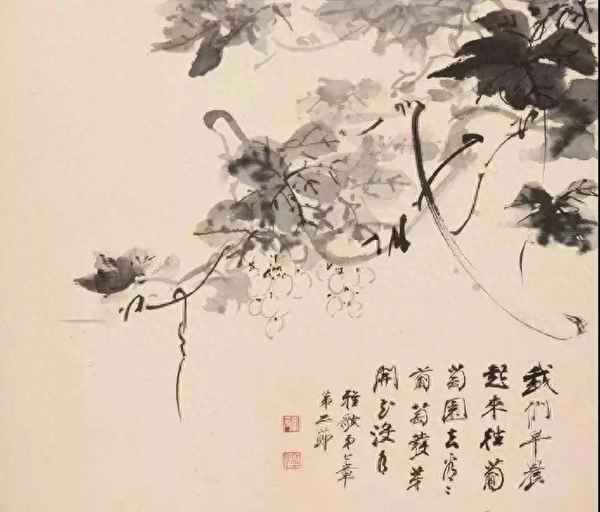 我們早晨
起來往葡
萄園去看〻
葡萄發芽
開花沒有
雅歌第七章
第十二節